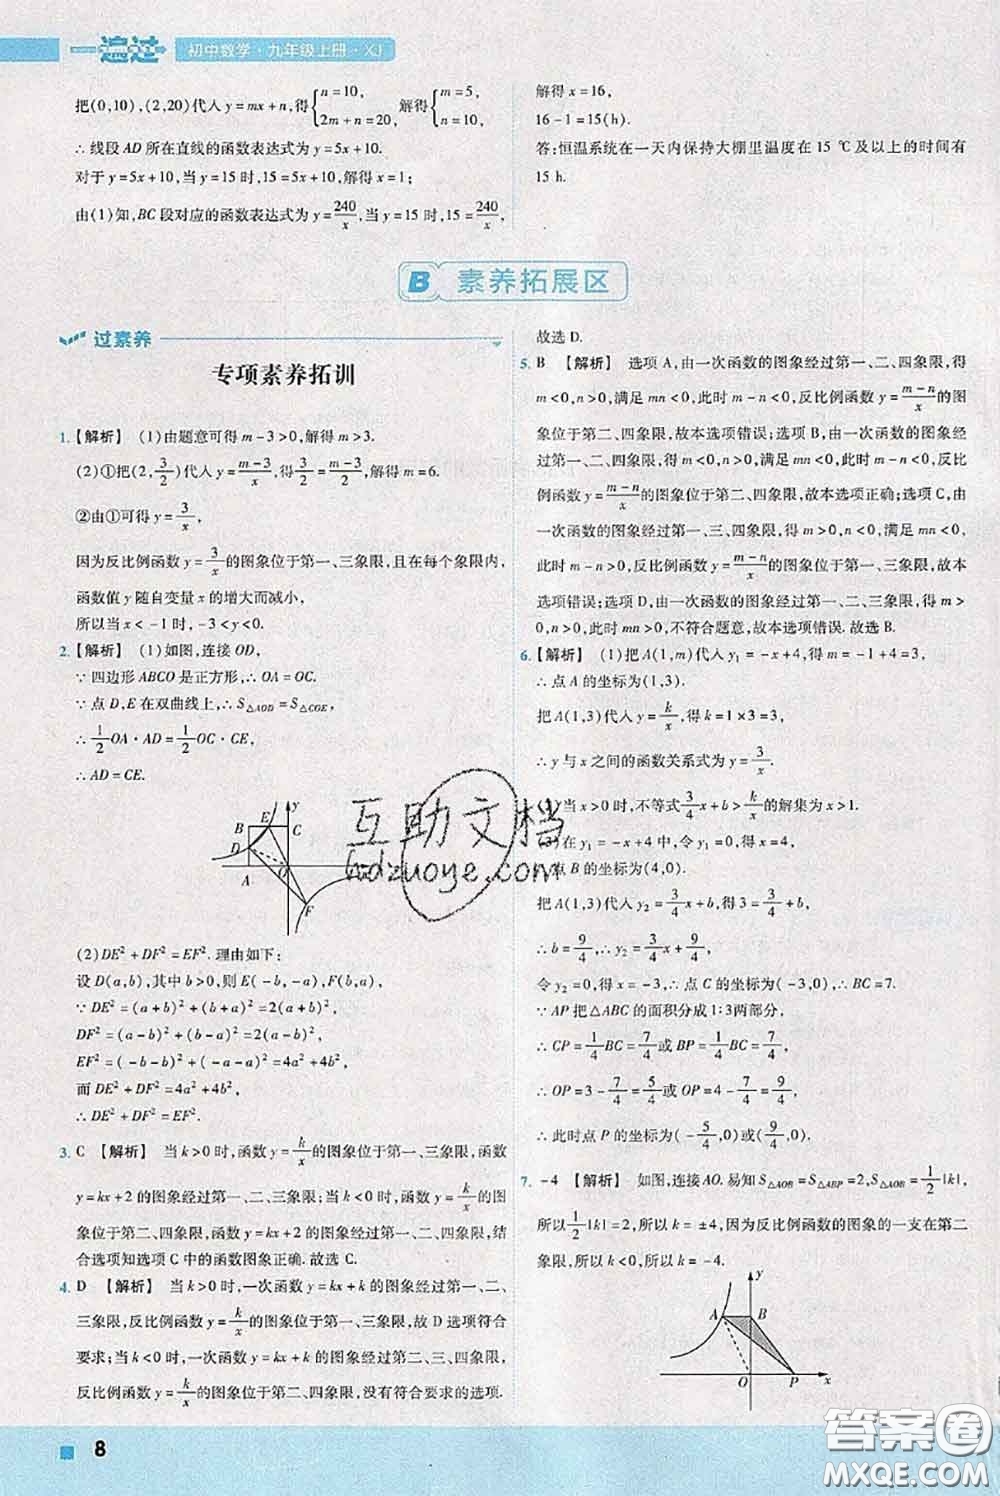 一遍过 初中数学·九年级上册·XJ
把(0,10),(2,20)代入y=mx+n,得{n=10, 2m+n=20, 解得{m=5, n=10,
∴线段AD所在直线的函数表达式为y=5x+10.
对于y=5x+10,当y=15时,15=5x+10,解得x=1;
由(1)知,BC段对应的函数表达式为y=240/x,当y=15时,15=240/x,
解得x=16,
16-1=15(h).
答:恒温系统在一天内保持大棚里温度在15 ℃及以上的时间有
15 h.
B 素养拓展区
过素养
专项素养拓训
1.【解析】 (1)由题意可得m-3>0,解得m>3.
(2)①把(2,3/2)代入y=(m-3)/x,得3/2=(m-3)/2,解得m=6.
②由①可得y=3/x,
因为反比例函数y=3/x的图象位于第一、三象限,且在每个象限内,
函数值y随自变量x的增大而减小,
所以当x<-1时,-3<y<0.
2.【解析】 (1)如图,连接OD,
∵四边形ABCO是正方形,∴OA=OC.
∵点D,E在双曲线上,∴S△AOD=S△COE,
∴1/2OA·AD=1/2OC·CE,
∴AD=CE.
y
B E C
D
A O x
F
(2)DE²+DF²=EF².理由如下:
设D(a,b),其中b>0,则E(-b,-a),F(b,a),
∵DE²=(a+b)²+(b+a)²=2(a+b)²,
DF²=(a-b)²+(b-a)²=2(a-b)²,
EF²=(-b-b)²+(-a-a)²=4a²+4b²,
而DE²+DF²=4a²+4b²,
∴DE²+DF²=EF².
3. C 【解析】 当k>0时,函数y=k/x的图象位于第一、三象限,函数
y=kx+2的图象经过第一、二、三象限;当k<0时,函数y=k/x的图
象位于第二、四象限,函数y=kx+2的图象经过第一、二、四象限,结
合选项知选项C中的函数图象正确.故选C.
4. D 【解析】 当k>0时,一次函数y=kx+k的图象经过第一、二、
三象限,反比例函数y=k/x的图象位于第一、三象限,故D选项符合
要求;当k<0时,一次函数y=kx+k的图象经过第二、三、四象限,
反比例函数y=k/x的图象位于第二、四象限,没有符合要求的选项.
故选D.
5. B 【解析】 选项A,由一次函数的图象经过第一、二、四象限,得
m<0,n>0,满足mn<0,此时m-n<0,反比例函数y=(m-n)/x的图
象位于第二、四象限,故本选项错误;选项B,由一次函数的图象经
过第一、二、四象限,得m<0,n>0,满足mn<0,此时m-n<0,反比
例函数y=(m-n)/x的图象位于第二、四象限,故本选项正确;选项C,由
一次函数的图象经过第一、三、四象限,得m>0,n<0,满足mn<0,
此时m-n>0,反比例函数y=(m-n)/x的图象位于第一、三象限,故本
选项错误;选项D,由一次函数的图象经过第一、二、三象限,得m>
0,n>0,此时mn>0,不符合题意,故本选项错误.故选B.
6.【解析】 (1)把A(1,m)代入y₁=-x+4,得m=-1+4=3,
∴点A的坐标为(1,3).
把A(1,3)代入y=k/x,得k=1×3=3,
∴y与x之间的函数关系式为y=3/x.
当x>0时,不等式3/4x+b>k/x的解集为x>1.
(3)在y₁=-x+4中,令y₁=0,得x=4,
∴点B的坐标为(4,0).
把A(1,3)代入y₂=3/4x+b,得3=3/4+b,
∴b=9/4,∴y₂=3/4x+9/4,
令y₂=0,得x=-3,∴点C的坐标为(-3,0),∴BC=7.
∵AP把△ABC的面积分成1:3两部分,
∴CP=1/4BC=7/4或BP=1/4BC=7/4,
∴OP=3-7/4=5/4或OP=4-7/4=9/4,
∴此时点P的坐标为(-5/4,0)或(9/4,0).
7. -4 【解析】 如图,连接AO.易知S△AOB=S△ABP=2,S△AOB=1/2|k|,
所以1/2|k|=2,所以k=±4,因为反比例函数的图象的一支在第二
象限,所以k<0,所以k=-4.
y
A B
O P x
互助文档
hdzuoye.com
8
答案圈
MXQE.COM